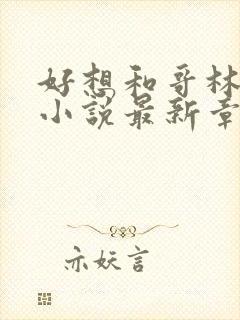 好想和哥林
小说最新章
亦妖言